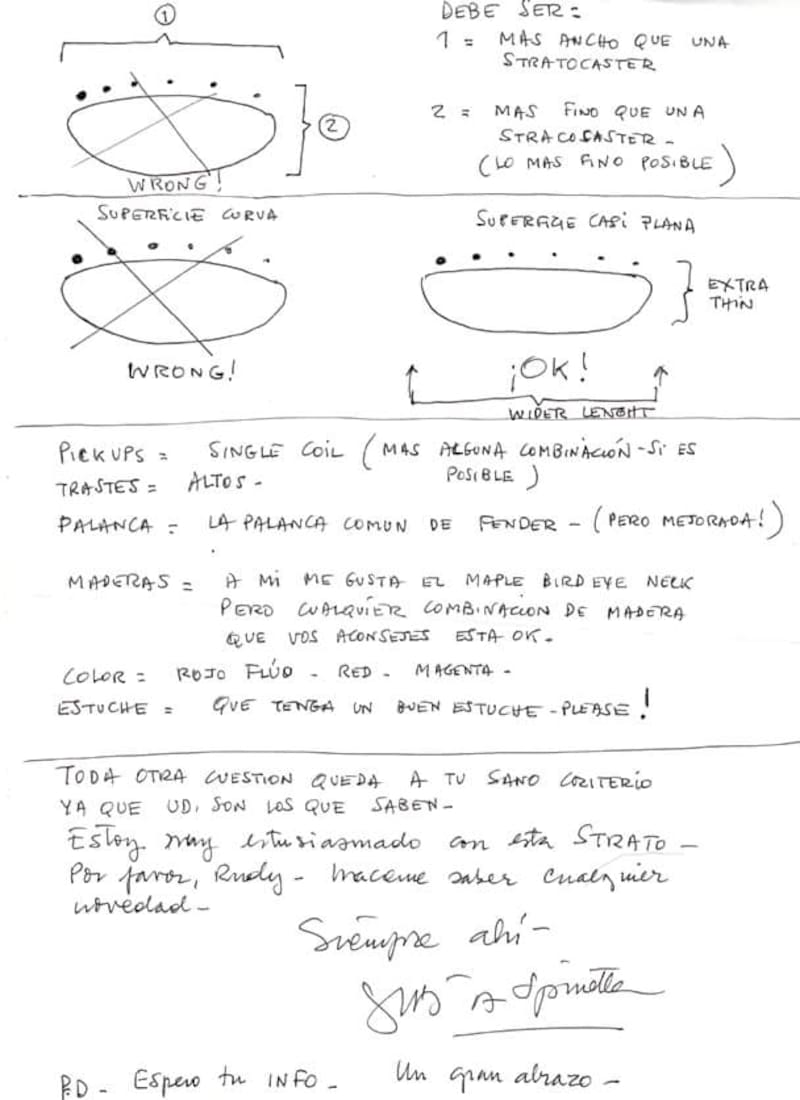 ①
②
WRONG!
DEBE SER:
1 = MAS ANCHO QUE UNA
STRATOCASTER
2 = MAS FINO QUE UNA
STRACOCASTER -
(LO MAS FINO POSIBLE)
SUPERFICIE CURVA
WRONG!
SUPERFICIE CASI PLANA
EXTRA
THIN
¡OK!
WIDER LENGHT
PICKUPS = SINGLE COIL (MAS ALGUNA COMBINACIÓN - SI ES
POSIBLE)
TRASTES = ALTOS -
PALANCA = LA PALANCA COMUN DE FENDER - (PERO MEJORADA!)
MADERAS = A MI ME GUSTA EL MAPLE BIRD EYE NECK
PERO CUALQUIER COMBINACION DE MADERA
QUE VOS ACONSEJES ESTA OK.
COLOR = ROJO FLÚO - RED - MAGENTA -
ESTUCHE = QUE TENGA UN BUEN ESTUCHE - PLEASE!
TODA OTRA CUESTION QUEDA A TU SANO CRITERIO
YA QUE UD. SON LOS QUE SABEN -
Estoy muy entusiasmado con esta STRATO -
Por favor, Rudy - haceme saber cualquier
novedad -
Siempre ahí -
Luis A Spinetta
P.D - Espero tu INFO - Un gran abrazo -